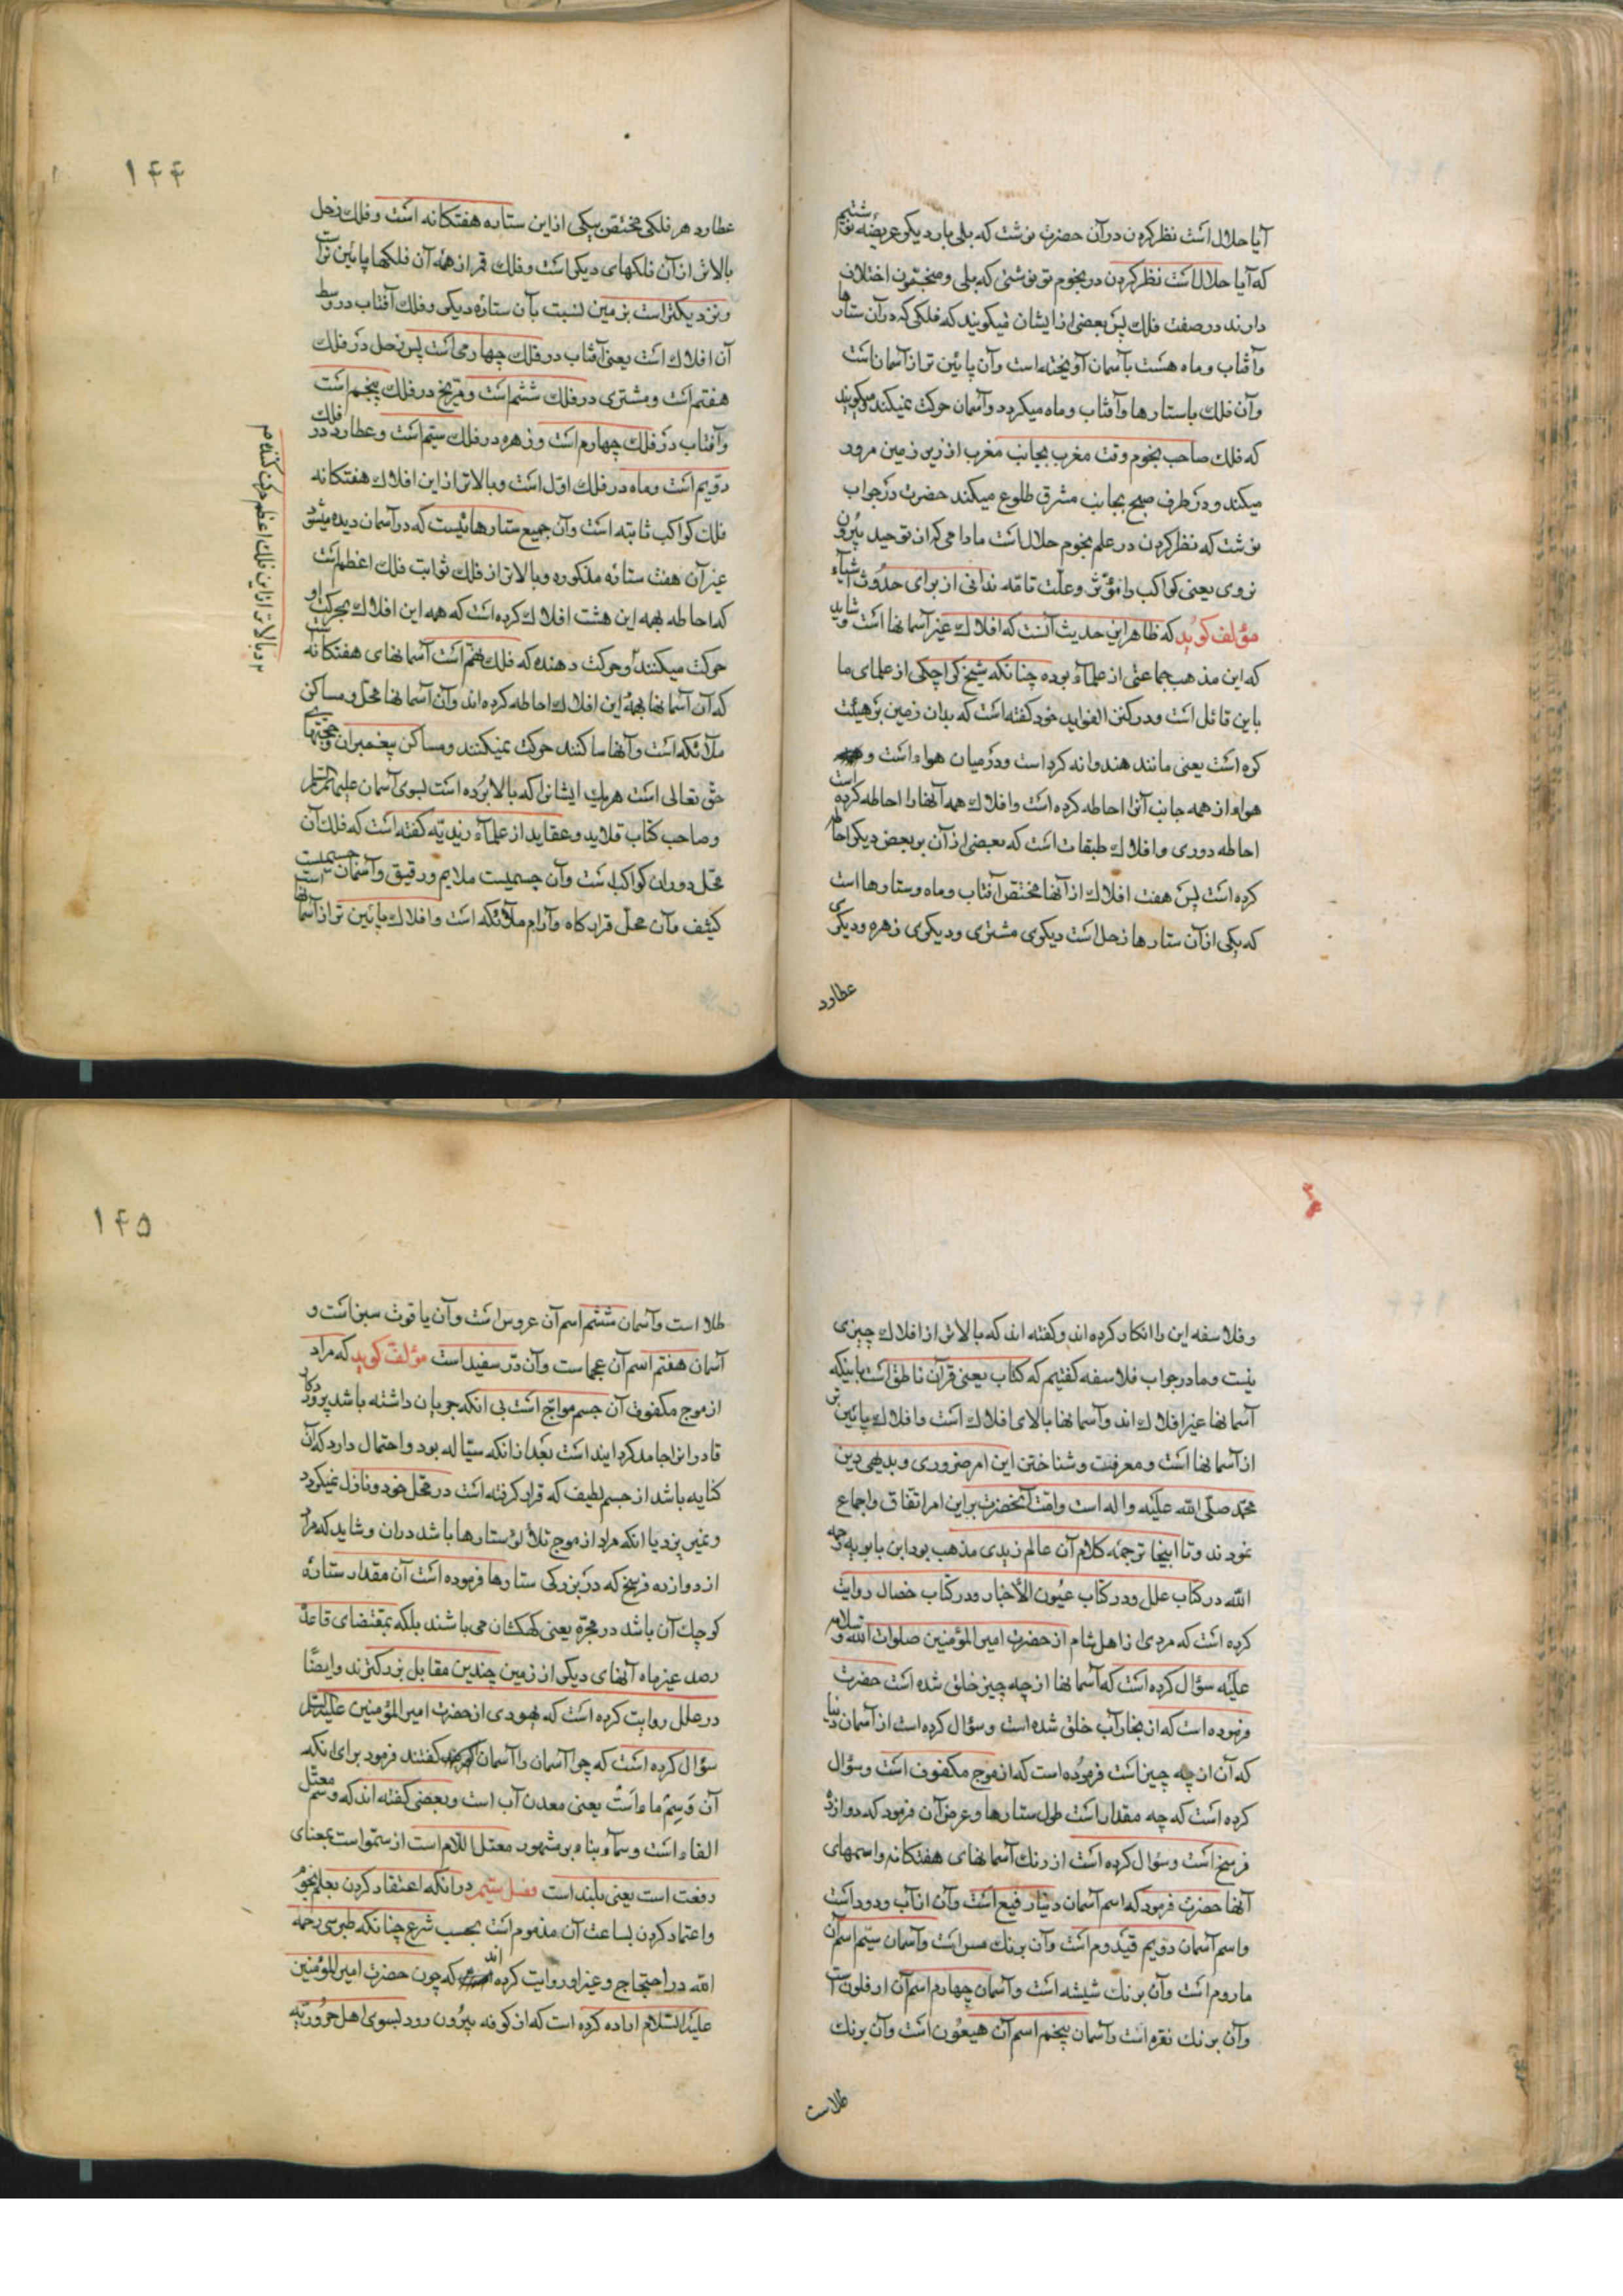 آیا حلال است نظر کردن در آن حضرت نوشت که بلی بار دیگر عریضه نوشتیم
که آیا حلال است نظر کردن در نجوم تو نوشتی که بلی و منجمون اختلاف
دارند در صفت فلک پس بعضی از ایشان میگویند که فلکی که در آن ستارها
و آفتاب و ماه هست بآسمان آویخته است و آن پائین تر از آسمان است
و آن فلک با ستارها و آفتاب و ماه میگردد و آسمان حرکت نمیکند و میگویند
که فلک صاحب نجوم وقت مغرب بجانب مغرب از زیر زمین مرور
میکند و در طرف صبح بجانب مشرق طلوع میکند حضرت در جواب
نوشت که نظر کردن در علم نجوم حلال است مادامی که از توحید بیرون
نروی یعنی کواکب را مؤثر و علت تامّه ندانی از برای حدوث اشیاء
مؤلف گوید که ظاهر این حدیث آنست که افلاک غیر آسمانها است و شاید
که این مذهب جماعتی از علماء بوده چنانکه شیخ کراجکی از علمای ما
باین قائل است و در کنز الفواید خود گفته است که بدان زمین بر هیئت
کره است یعنی مانند هندوانه گرد است و در میان هواء است و
هواء از همه جانب آنرا احاطه کرده است و افلاک همه آنها را احاطه کرده است
احاطه دوری و افلاک طبقات است که بعضی از آن بر بعض دیگر احاطه
کرده است پس هفت افلاک از آنها مختص آفتاب و ماه و ستارها است
که یکی از آن ستارها زحل است دیگری مشتری و دیگری زهره و دیگری
عطارد
۱۴۴
عطارد هر فلکی مختص بیکی از این ستاره هفتگانه است و فلک زحل
بالاتر از آن فلکهای دیگر است و فلک قمر از همه آن فلکها پائین تر است
و نزدیکتر است بزمین نسبت بآن ستاره دیگر و فلک آفتاب در وسط
آن افلاک است یعنی آفتاب در فلک چهارمی است پس زحل در فلک
هفتم است و مشتری در فلک ششم است و مریخ در فلک پنجم است
و آفتاب در فلک چهارم است و زهره در فلک سیّم است و عطارد در فلک
دویم است و ماه در فلک اول است و بالاتر از این افلاک هفتگانه
فلک کواکب ثابته است و آن جمیع ستارهائیست که در آسمان دیده میشود
غیر آن هفت ستاره مذکوره و بالاتر از فلک ثوابت فلک اعظم است
که احاطه بهمه این هشت افلاک کرده است که همه این افلاک بحرکت او
حرکت میکنند و حرکت دهنده که فلک نهم است آسمانهای هفتگانه است
که آن آسمانها بهمه این افلاک احاطه کرده اند و آن آسمانها محل و مساکن
ملائکه است و آنها ساکنند حرکت نمیکنند و مساکن پیغمبران و حجتهای
حق تعالی است هر یک ایشانرا که بالا برده است بسوی آسمان علیهم السلام
و صاحب کتاب قلاید و عقاید از علماء زیدیّه گفته است که فلک آن
محل دوران کواکب است و آن جسمیست ملایم و رقیق و آسمان جسمیست
کثیف و آن محل قرارگاه و آرام ملائکه است و افلاک پائین تر از آسمانها است
و بالاتر از این فلک اعظم حرکت کننده م
۱۴۵
و فلاسفه این را انکار کرده اند و گفته اند که بالاتر از افلاک چیزی
نیست و ما در جواب فلاسفه گفتیم که کتاب یعنی قرآن ناطق است باینکه
آسمانها غیر افلاک اند و آسمانها بالای افلاک است و افلاک پائین تر
از آسمانها است و معرفت و شناختن این امر ضروری و بدیهی دین
محمد صلّی اللّه علیه و اله است و امّت آنحضرت بر این امر اتفاق و اجماع
نمودند و تا اینجا ترجمه کلام آن عالم زیدی مذهب بود ابن بابویه رحمه
اللّه در کتاب علل و در کتاب عیون الأخبار و در کتاب خصال روایت
کرده است که مردی از اهل شام از حضرت امیر المؤمنین صلوات اللّه و سلامه
علیه سؤال کرده است که آسمانها از چه چیز خلق شده است حضرت
فرموده است که از بخار آب خلق شده است و سؤال کرده است از آسمان دنیا
که آن از چه چیز است فرموده است که از موج مکفوف است و سؤال
کرده است که چه مقدار است طول ستارها و عرض آن فرمود که دوازده
فرسخ است و سؤال کرده است از رنگ آسمانهای هفتگانه و اسمهای
آنها حضرت فرمود که اسم آسمان دنیا رفیع است و آن از آب و دود است
و اسم آسمان دویم قیدوم است و آن برنگ مس است و آسمان سیّم اسم آن
ماروم است و آن برنگ شیشه است و آسمان چهارم اسم آن ارفلون است
و آن برنگ نقره است و آسمان پنجم اسم آن هیعون است و آن برنگ
طلاست
طلا است و آسمان ششم اسم آن عروس است و آن یاقوت سبز است و
آسمان هفتم اسم آن عجما ست و آن درّ سفید است مؤلف گوید که مراد
از موج مکفوف آن جسم موّاج است بی انکه جریان داشته باشد پروردگار
قادر انرا جامد گردانیده است بعد از انکه سیّاله بود و احتمال دارد که آن
کنایه باشد از جسم لطیف که قرار گرفته است در محل خود و نازل نمیگردد
و نمیریزد یا انکه مراد از موج تلألؤ ستارها باشد در ان و شاید که مراد
از دوازده فرسخ که در بزرگی ستارها فرموده است آن مقدار ستاره
کوچک آن باشد در مجرّه یعنی کهکشان می باشند بلکه بمقتضای قاعده
رصد غیر ماه آنهای دیگر از زمین چندین مقابل بزرگترند و ایضًا
در علل روایت کرده است که یهودی از حضرت امیر المؤمنین علیه السلام
سؤال کرده است که چرا آسمان را آسمان گفتند فرمود برای انکه
آن وسم ماء است یعنی معدن آب است و بعضی گفته اند که وسم معتل
الفاء است و سماء بناء بر مشهور معتل اللّام است از سمّو است بمعنای
رفعت است یعنی بلند است فصل سیّم در انکه اعتقاد کردن بعلم نجوم
و اعتماد کردن بساعت آن مذموم است بحسب شرع چنانکه طبرسی رحمه
اللّه در احتجاج و غیر او روایت کرده اند که چون حضرت امیر المؤمنین
علیه السّلام اراده کرده است که از کوفه بیرون رود بسوی اهل حروریّه